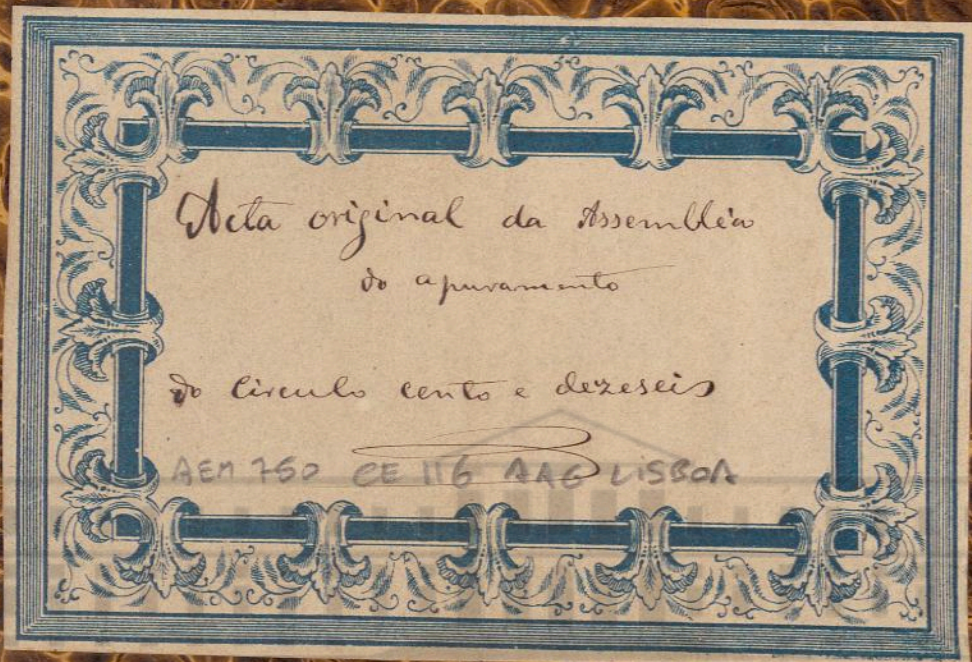 Acta original da Assembléa
do apuramento
do Circulo cento e dezeseis
AEM 750 CE 116 AAG LISBOA